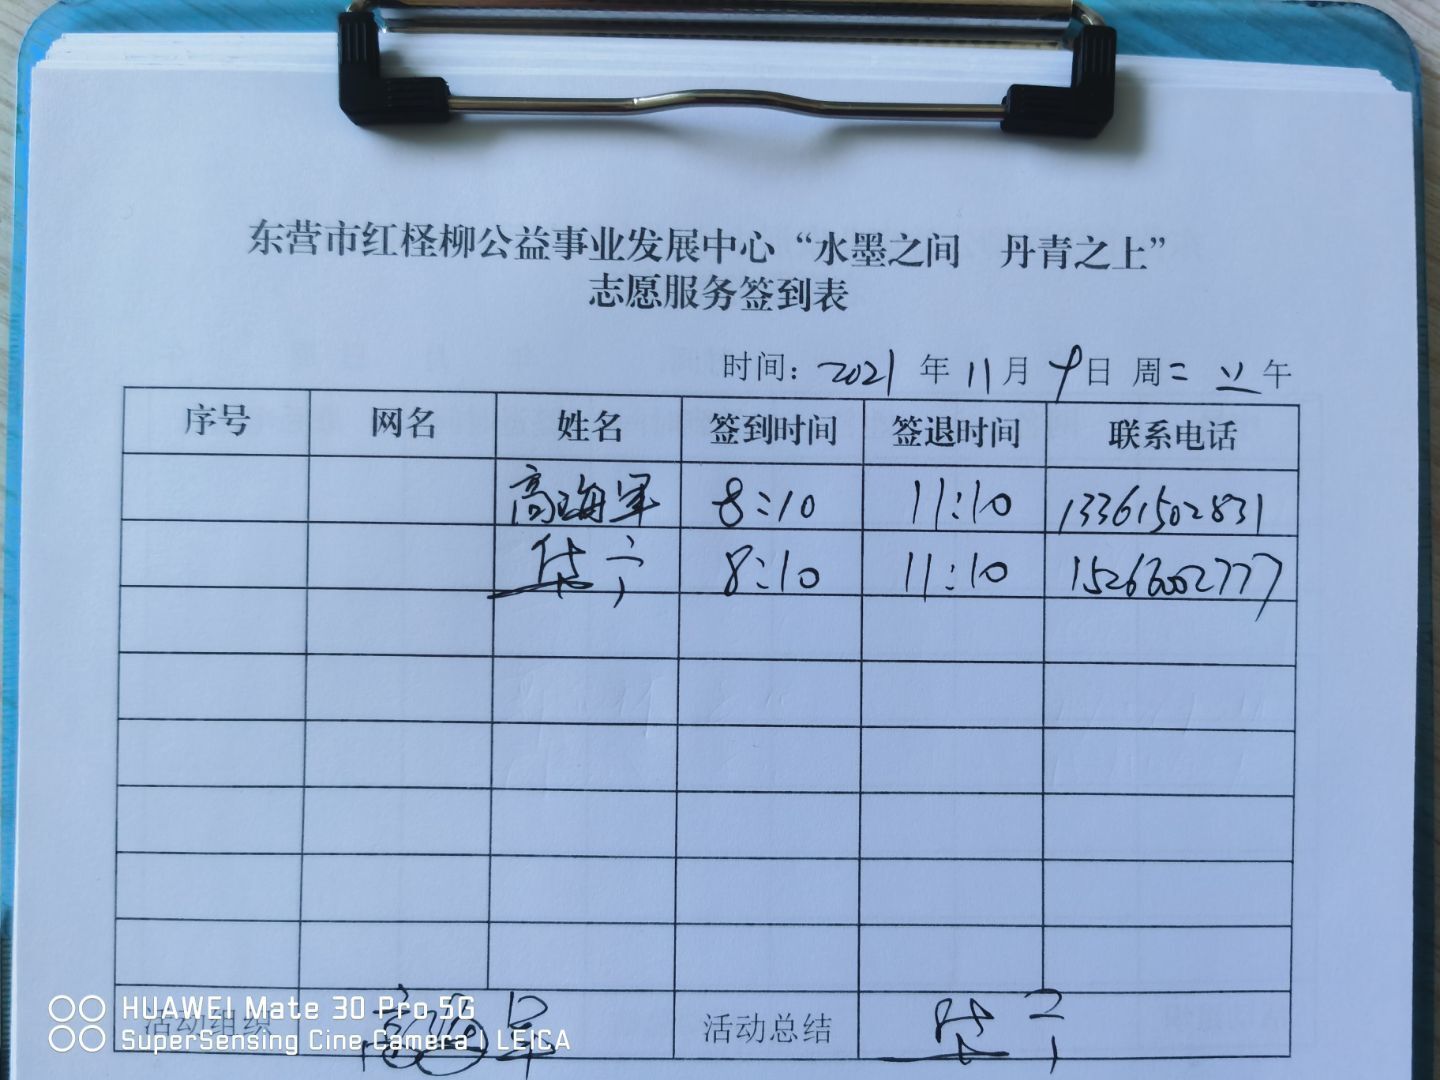 东营市红柽柳公益事业发展中心“水墨之间 丹青之上”
志愿服务签到表
时间：2021 年 11 月 9 日 周二 上午
序号 网名 姓名 签到时间 签退时间 联系电话
高海军 8:10 11:10 13361502831
8:10 11:10 15266002777
活动组织 高海军 活动总结
HUAWEI Mate 30 Pro 5G
SuperSensing Cine Camera | LEICA